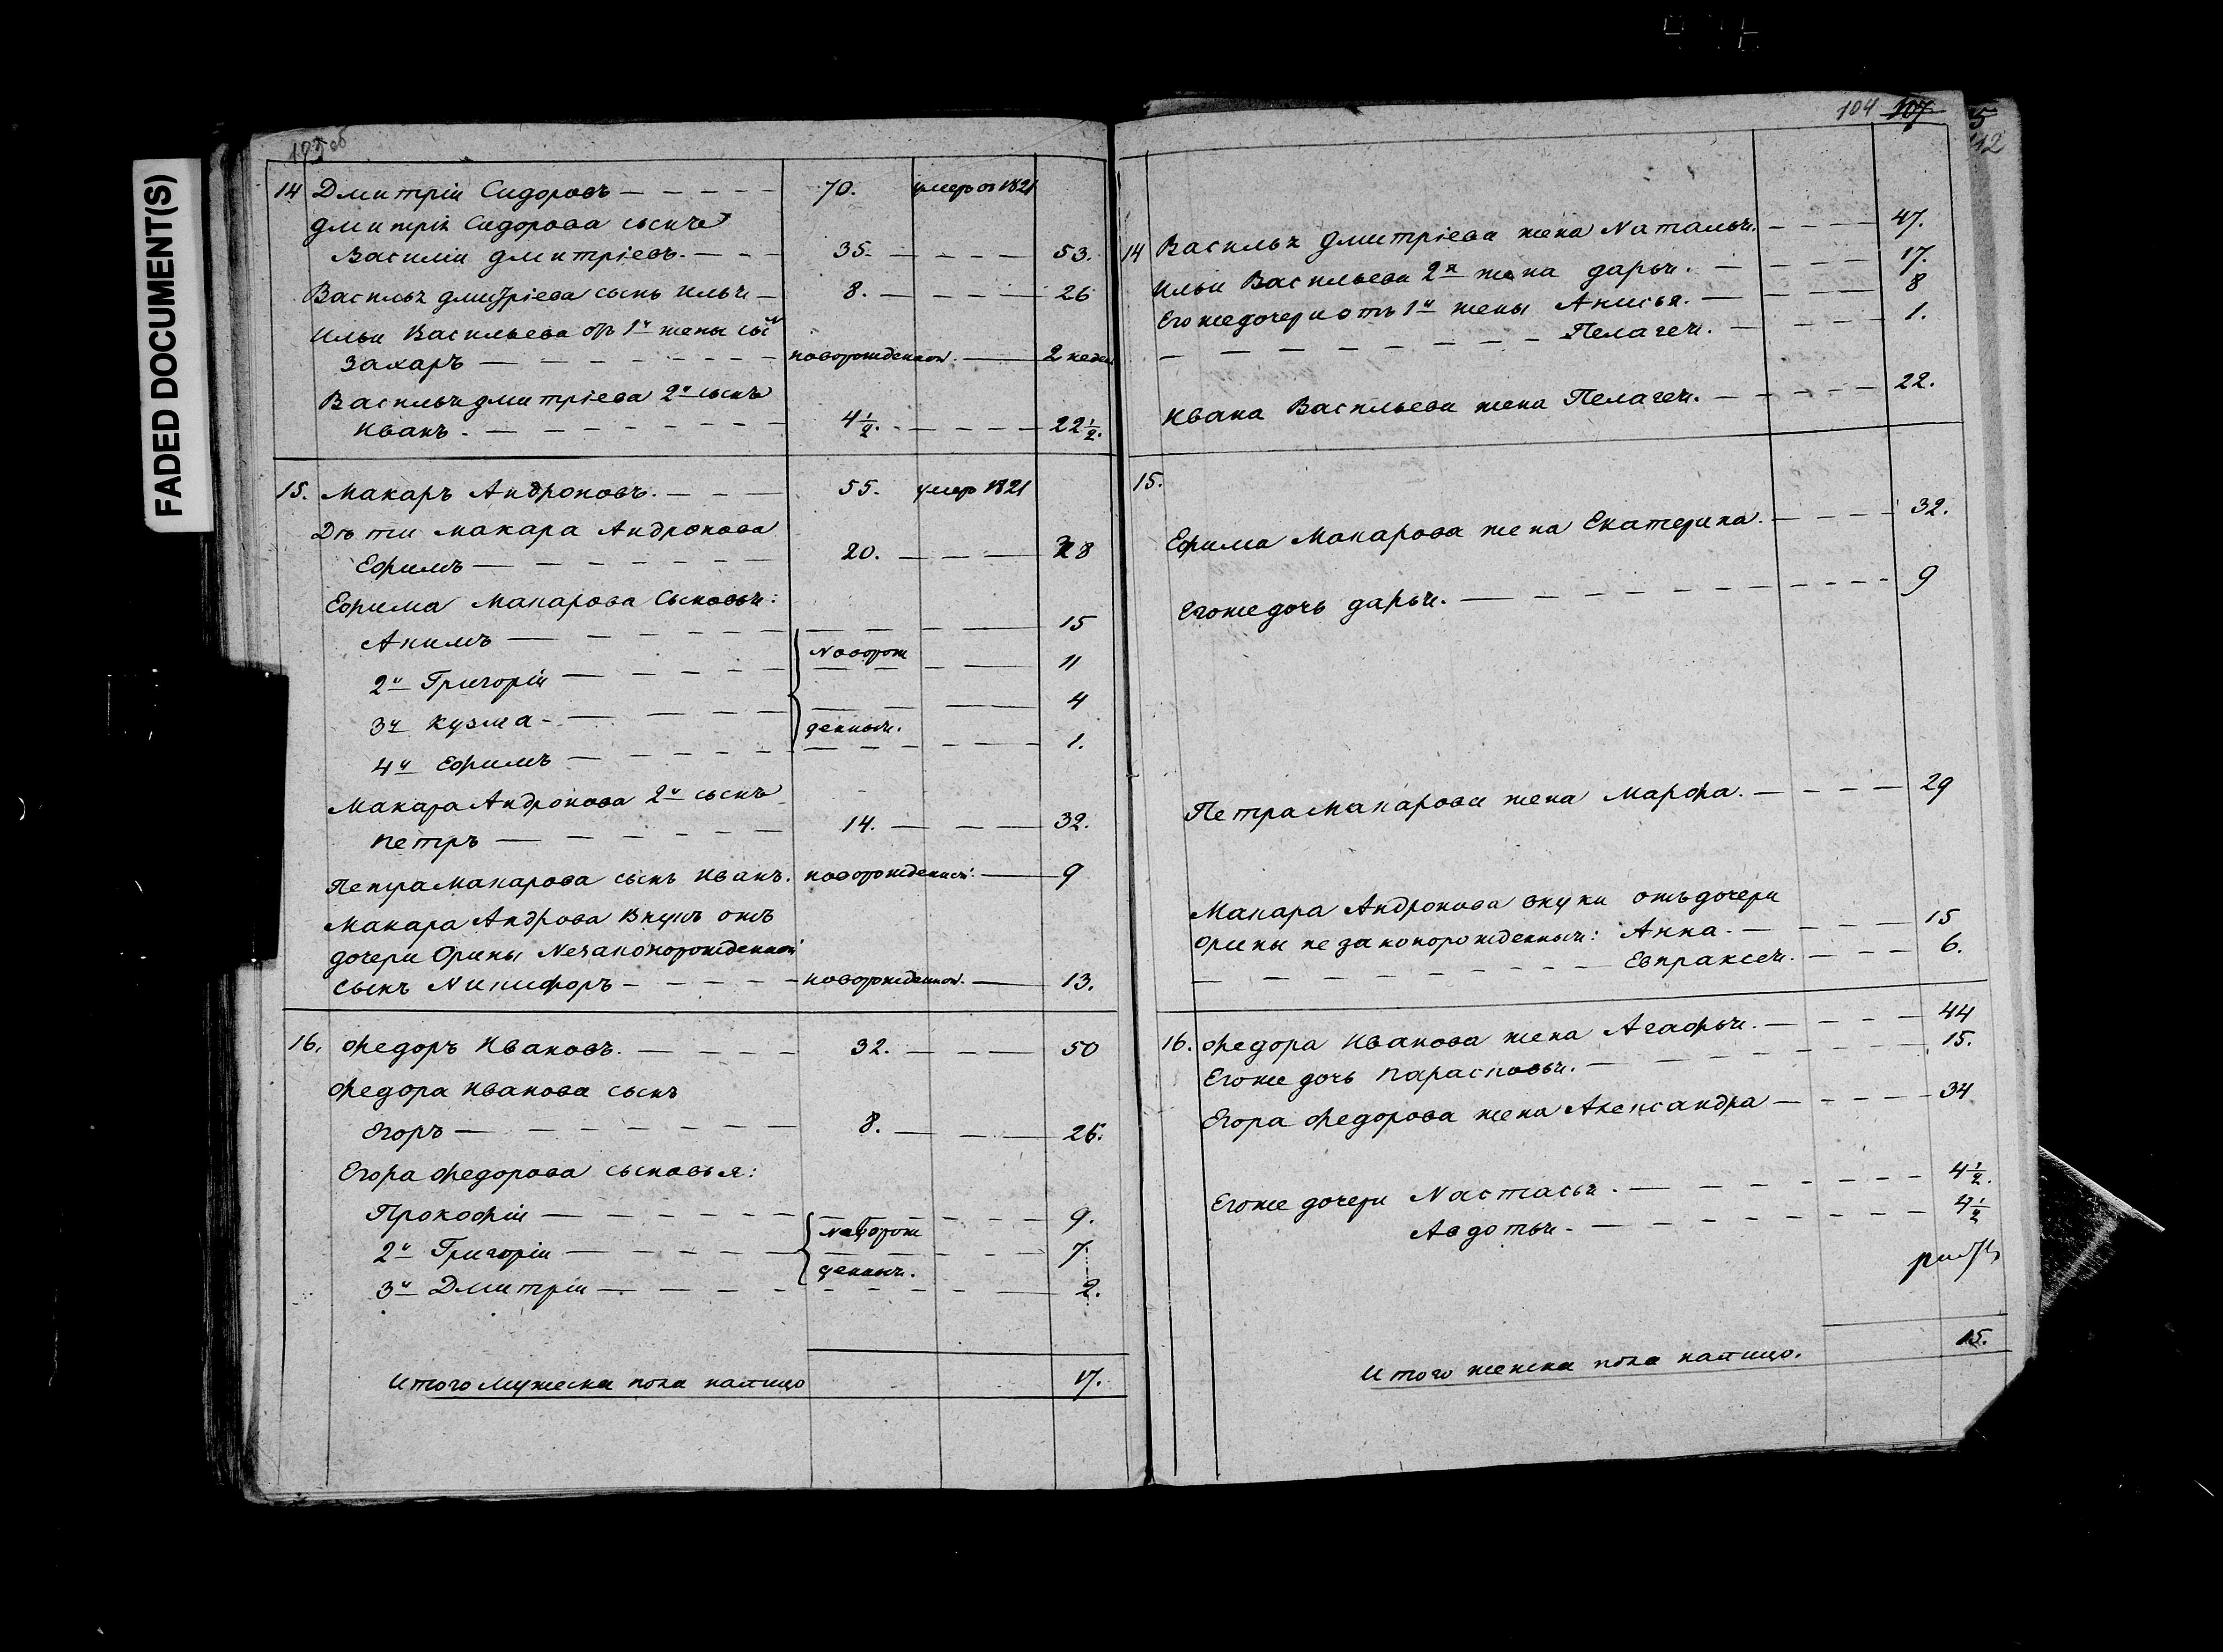 FADED DOCUMENT(S)
103 об
14 Дмитрій Сидоровъ 70. умеръ въ 1821
Дмитрія Сидорова сынъ
Василій Дмитріевъ. 35. 53.
Василья Дмитріева сынъ Илья 8. 26
Ильи Васильева отъ 1й жены сынъ
Захаръ новорожденной. 2 недели
Василья Дмитріева 2й сынъ
Иванъ. 4 1/2. 22 1/2.
15. Макаръ Андроновъ. 55. умеръ 1821
Дѣти Макара Андронова
Ефимъ 20. 38
Ефима Макарова сыновья:
Акимъ 15
2й Григорій Новорож 11
3й Кузма 4
денныя.
4й Ефимъ 1.
Макара Андронова 2й сынъ
Петръ 14. 32.
Петра Макарова сынъ Иванъ. новорожденный. 9
Макара Андрова внукъ отъ
дочери Орины Незаконорожденной
сынъ Никифоръ новорожденной. 13.
16. Федоръ Ивановъ. 32. 50
Федора Иванова сынъ
Егоръ 8. 26.
Егора Федорова сыновья:
Прокофій 9.
Новорож
2й Григорій 7.
денныя.
3й Дмитрій 2.
Итого мужеска пола налицо 17.
104 107
12
14 Василья Дмитріева жена Наталья. 47.
Ильи Васильева 2я жена Дарья. 17.
Его же дочери отъ 1й жены Анисья. 8
Пелагея. 1.
Ивана Васильева жена Пелагея. 22.
15.
Ефима Макарова жена Екатерина. 32.
Его же дочь Дарья. 9
Петра Макарова жена Марфа. 29
Макара Андронова внуки отъ дочери
Орины незаконорожденныя: Анна. 15
Евпраксея. 6.
16. Федора Иванова жена Агафья. 44
Его же дочь Парасковья. 15.
Егора Федорова жена Александра 34
Его же дочери Настасья. 4 1/2.
Авдотья. 4 1/2
Итого женска пола налицо. 15.